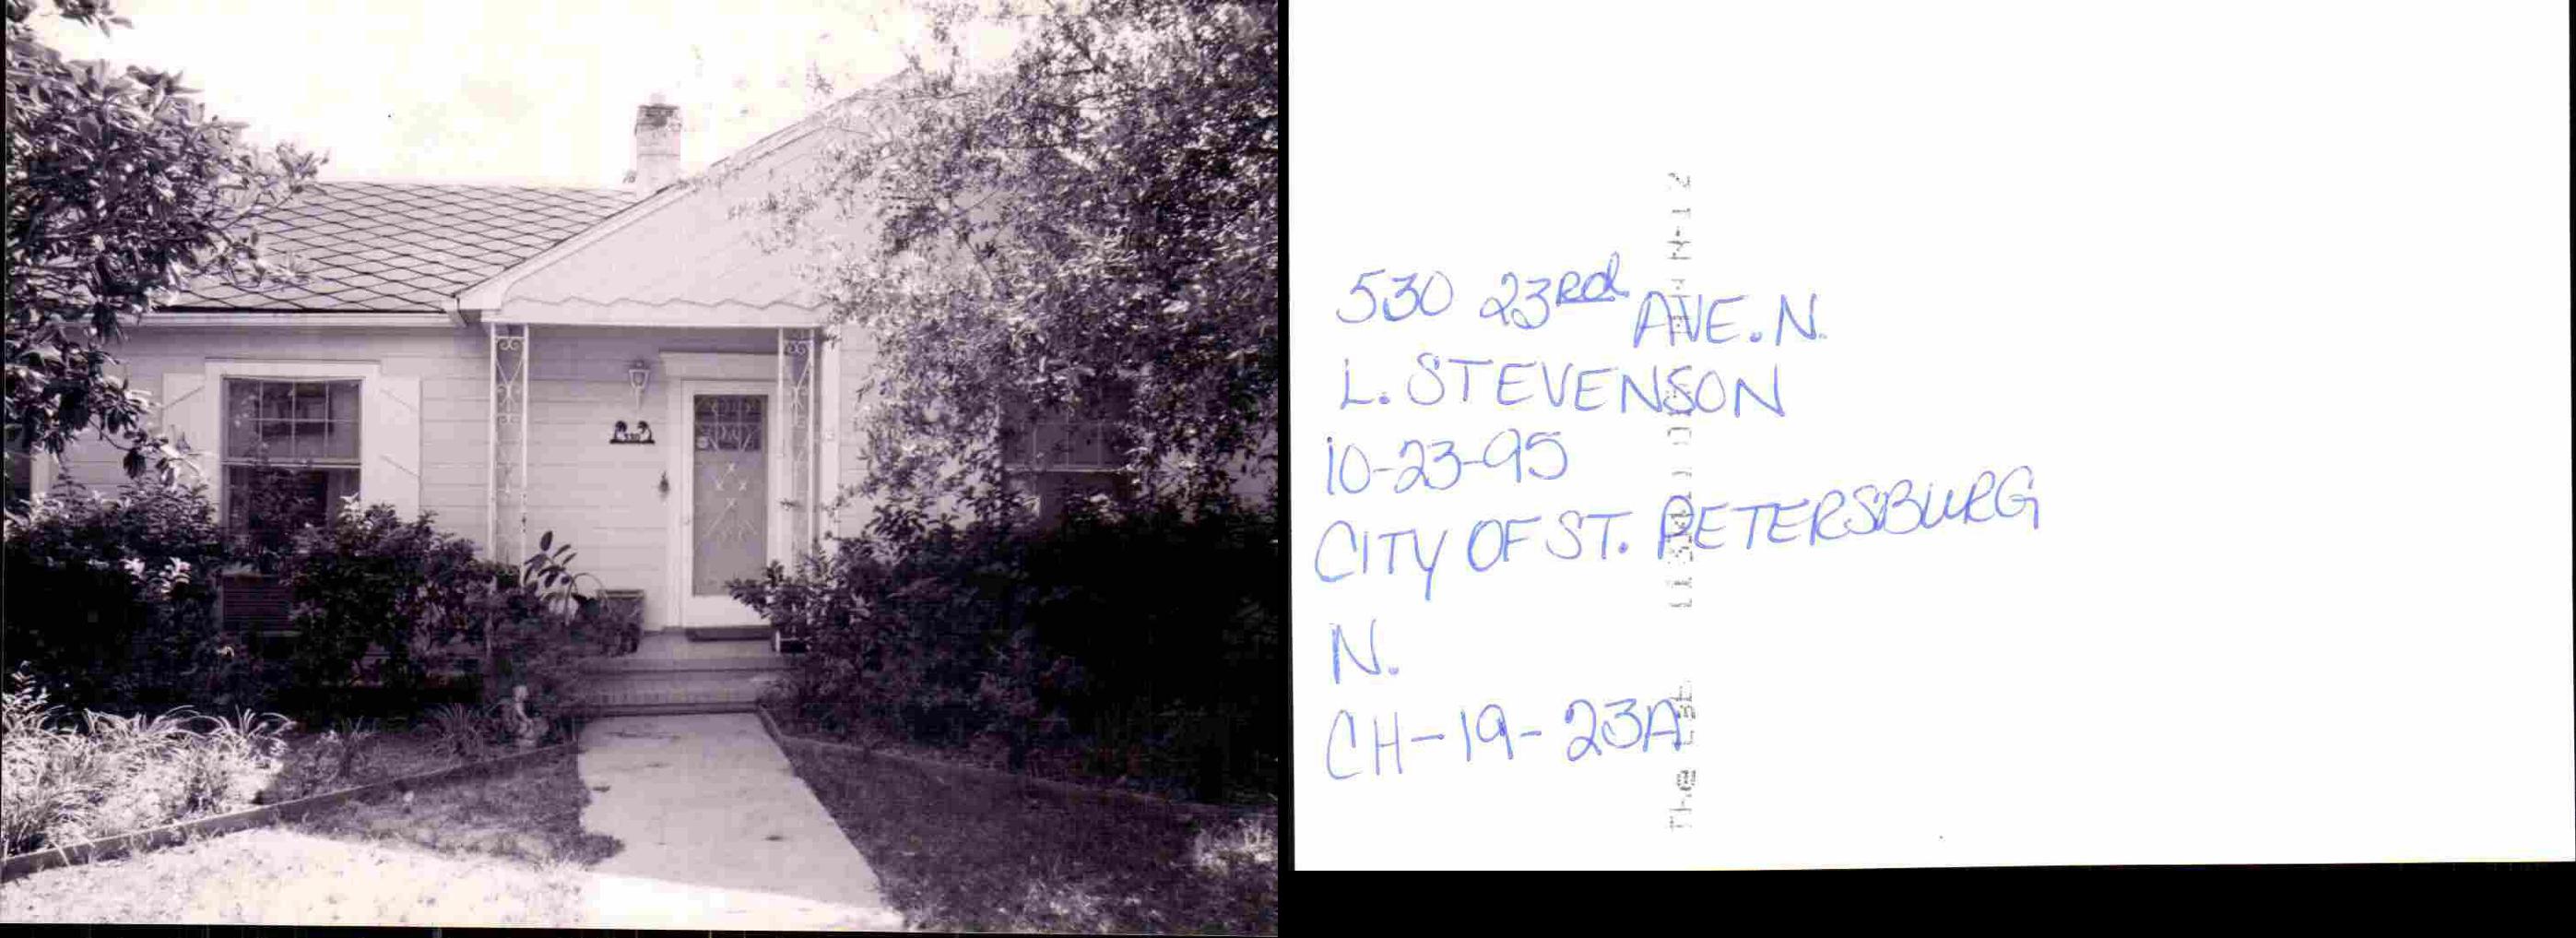 530
530 23Rd AVE. N.
L. STEVENSON
10-23-95
CITY OF ST. PETERSBURG
N.
CH-19-23A